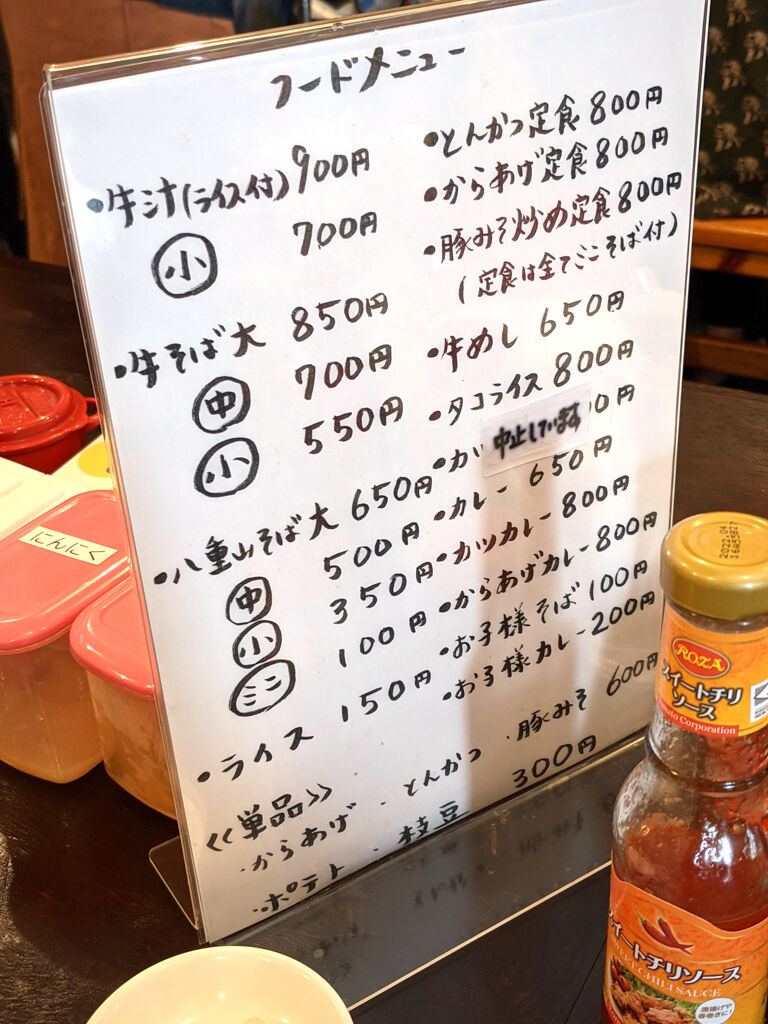 フードメニュー
・牛汁(ライス付) 900円
小 700円
・牛そば大 850円
中 700円
小 550円
・八重山そば大 650円
中 500円
小 350円
ミニ 100円
・ライス 150円
・とんかつ定食 800円
・からあげ定食 800円
・豚みそ炒め定食 800円
(定食は全てミニそば付)
・牛めし 650円
・タコライス 800円
・カ 中止しています 00円
・カレー 650円
・カツカレー 800円
・からあげカレー 800円
・お子様そば 100円
・お子様カレー 200円
《単品》
・からあげ ・とんかつ ・豚みそ 600円
・ポテト ・枝豆 300円
にんにく
2022.04
ROZA
スイートチリ
ソース
Tomato Corporation
スイートチリソース
SWEET CHILI SAUCE
唐揚げや
春巻きに!